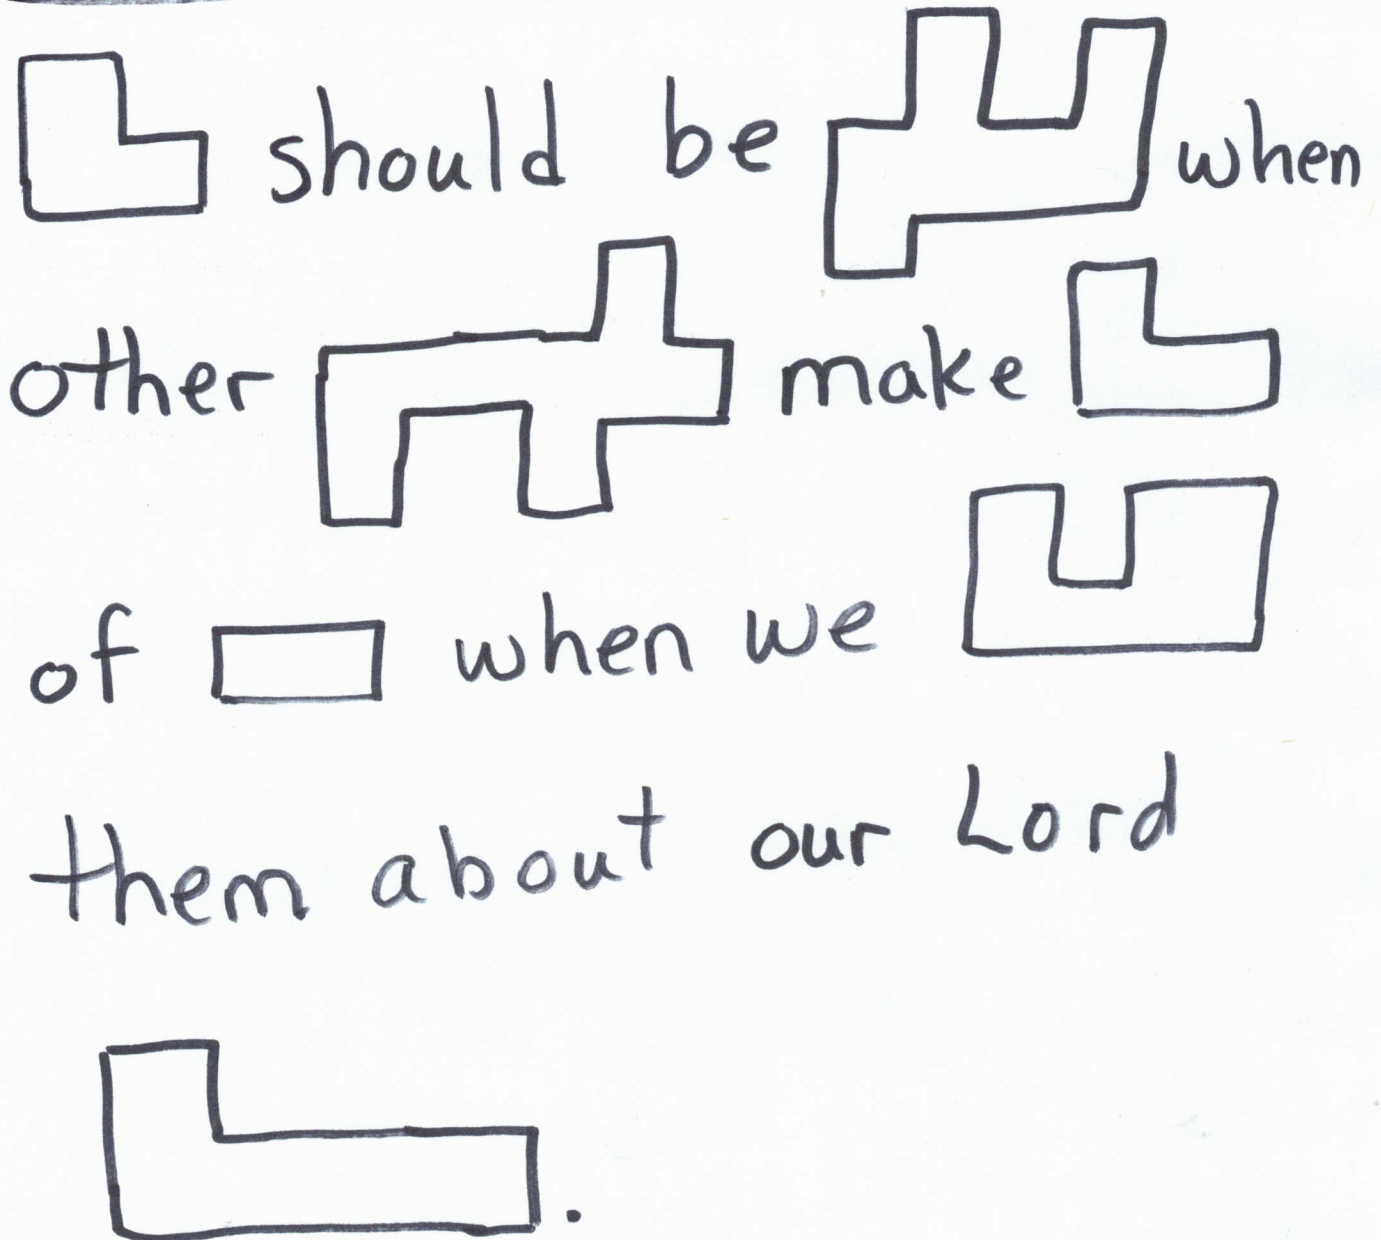 should be when
other make
of when we
them about our Lord
.